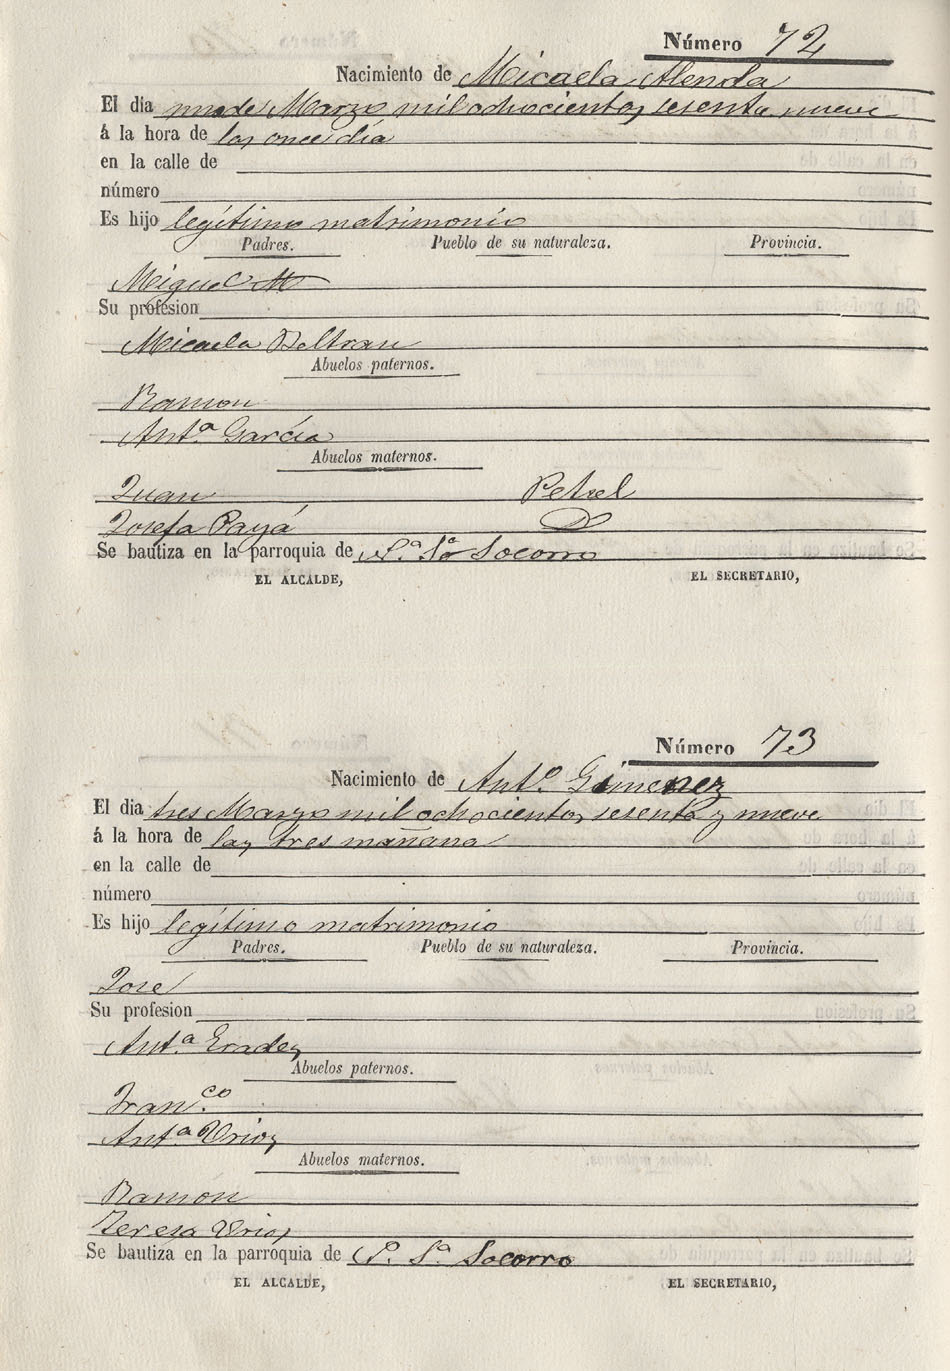 Número 72
Nacimiento de Micaela Alenda
El dia uno de Marzo mil ochocientos sesenta y nueve
á la hora de las once dia
en la calle de
número
Es hijo legítimo matrimonio
Padres. Pueblo de su naturaleza. Provincia.
Miguel
Su profesion
Micaela Beltran
Abuelos paternos.
Ramon
Ant.ª García
Abuelos maternos.
Juan Petrel
Josefa Payá D
Se bautiza en la parroquia de N.ª Sª Socorro
EL ALCALDE, EL SECRETARIO,
Número 73
Nacimiento de Antº. Gimenez
El dia tres Marzo mil ochocientos sesenta y nueve
á la hora de las tres mañana
en la calle de
número
Es hijo legítimo matrimonio
Padres. Pueblo de su naturaleza. Provincia.
José
Su profesion
Ant.ª Erades
Abuelos paternos.
Fran.co
Ant.ª Urios
Abuelos maternos.
Ramon
Teresa Urios
Se bautiza en la parroquia de N.ª Sª Socorro
EL ALCALDE, EL SECRETARIO,